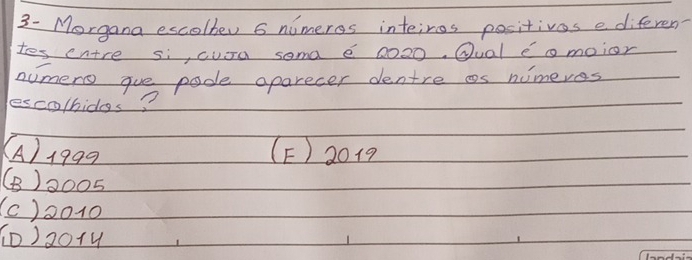 3- Morgana escolheu 6 números inteiros positivos e diferen-
tes entre si, cuja soma é 2020. Qual é o maior
número que pode aparecer dentre os números
escolhidos?
(A) 1999 (E) 2019
(B) 2005
(C) 2010
(D) 2014